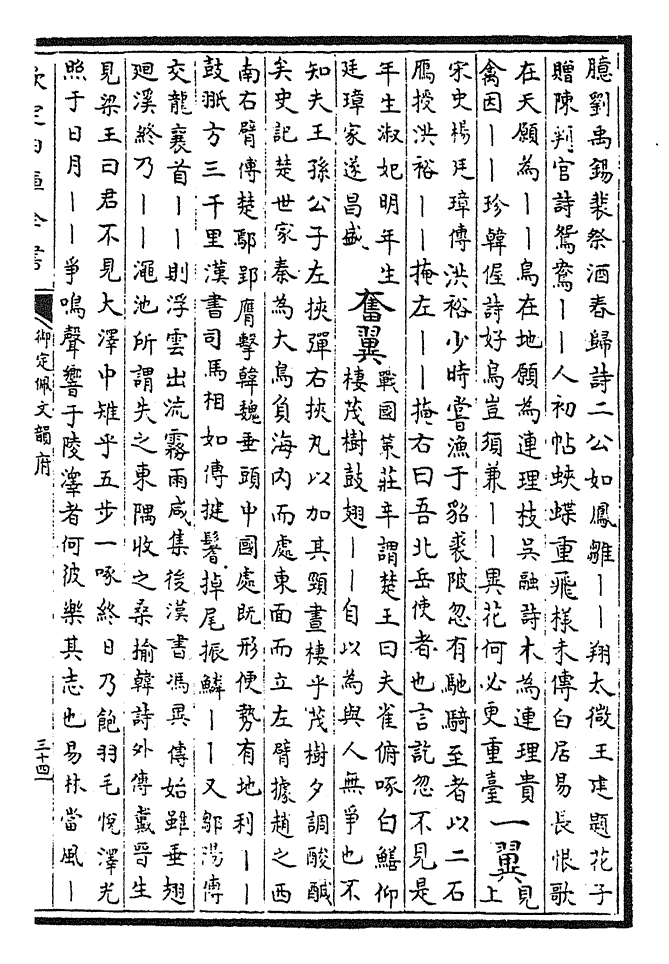 臆劉禹錫裴祭酒春歸詩二公如鳳雛——翔太微王建題花子
贈陳判官詩鴛鴦——人初帖蛺蝶重飛様未傳白居易長恨歌
在天願為——鳥在地願為連理枝吳融詩木為連理貴
禽因——珍韓偓詩好鳥豈須兼——異花何必更重臺
一翼
見
上
宋史楊廷璋傳洪裕少時嘗漁于貂裘陂忽有馳騎至者以二石
鴈授洪裕——掩左——掩右曰吾北岳使者也言訖忽不見是
年生淑妃明年生
廷璋家遂昌盛
奮翼
戰國策莊辛謂楚王曰夫雀俯啄白鱔仰
棲茂樹鼓翅——自以為與人無爭也不
知夫王孫公子左挾彈右挾丸以加其頸晝棲乎茂樹夕調酸醎
矣史記楚世家秦為大鳥負海内而處東面而立左臂據趙之西
南右臂傅楚鄢郢膺擊韓魏垂頭中國處既形便勢有地利——
鼓翄方三千里漢書司馬相如傳揵鬐掉尾振鱗——又鄒湯傳
交龍襄首——則浮雲出流霧雨咸集後漢書馮異傳始雖垂翅
廻溪終乃——澠池所謂失之東隅收之桑揄韓詩外傳戴晉生
見梁王曰君不見大澤中雉乎五步一啄終日乃飽羽毛悅澤光
照于日月——爭鳴聲響于陵澤者何彼樂其志也易林當風—
欽定四庫全書
御定佩文韻府
三十四